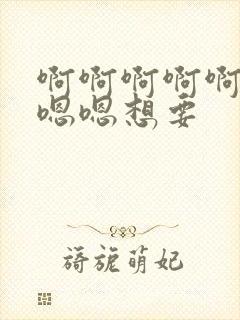 啊啊啊啊啊
嗯嗯想要
旖旎萌妃